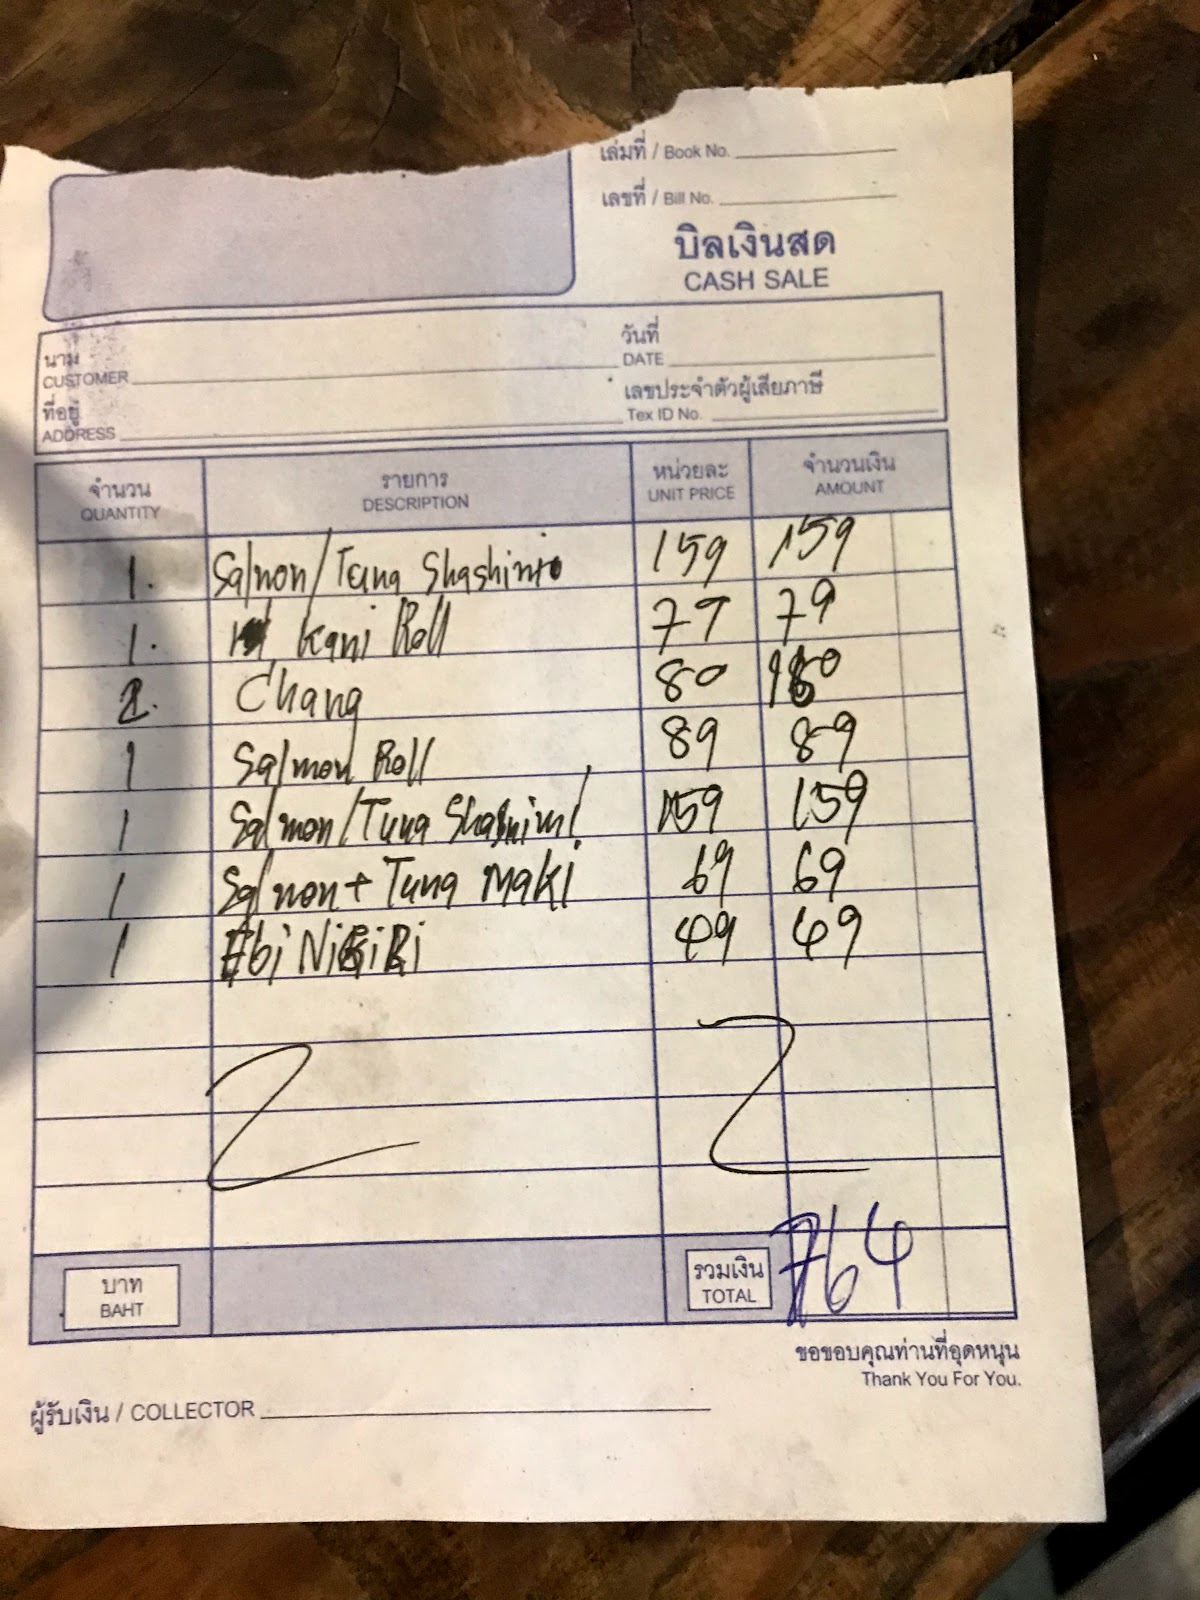 เล่มที่ / Book No.
เลขที่ / Bill No.
บิลเงินสด
CASH SALE
นาม
CUSTOMER
วันที่
DATE
ที่อยู่
ADDRESS
เลขประจำตัวผู้เสียภาษี
Tex ID No.
จำนวน รายการ หน่วยละ จำนวนเงิน
QUANTITY DESCRIPTION UNIT PRICE AMOUNT
1. Salmon/Tuna Shashimi 159 159
1. Kani Roll 79 79
2. Chang 80 160
1 Salmon Roll 89 89
1 Salmon/Tuna Shashimi 159 159
1 Salmon + Tuna Maki 69 69
1 Ebi NiGiRi 49 49
บาท รวมเงิน 764
BAHT TOTAL
ขอขอบคุณท่านที่อุดหนุน
Thank You For You.
ผู้รับเงิน / COLLECTOR